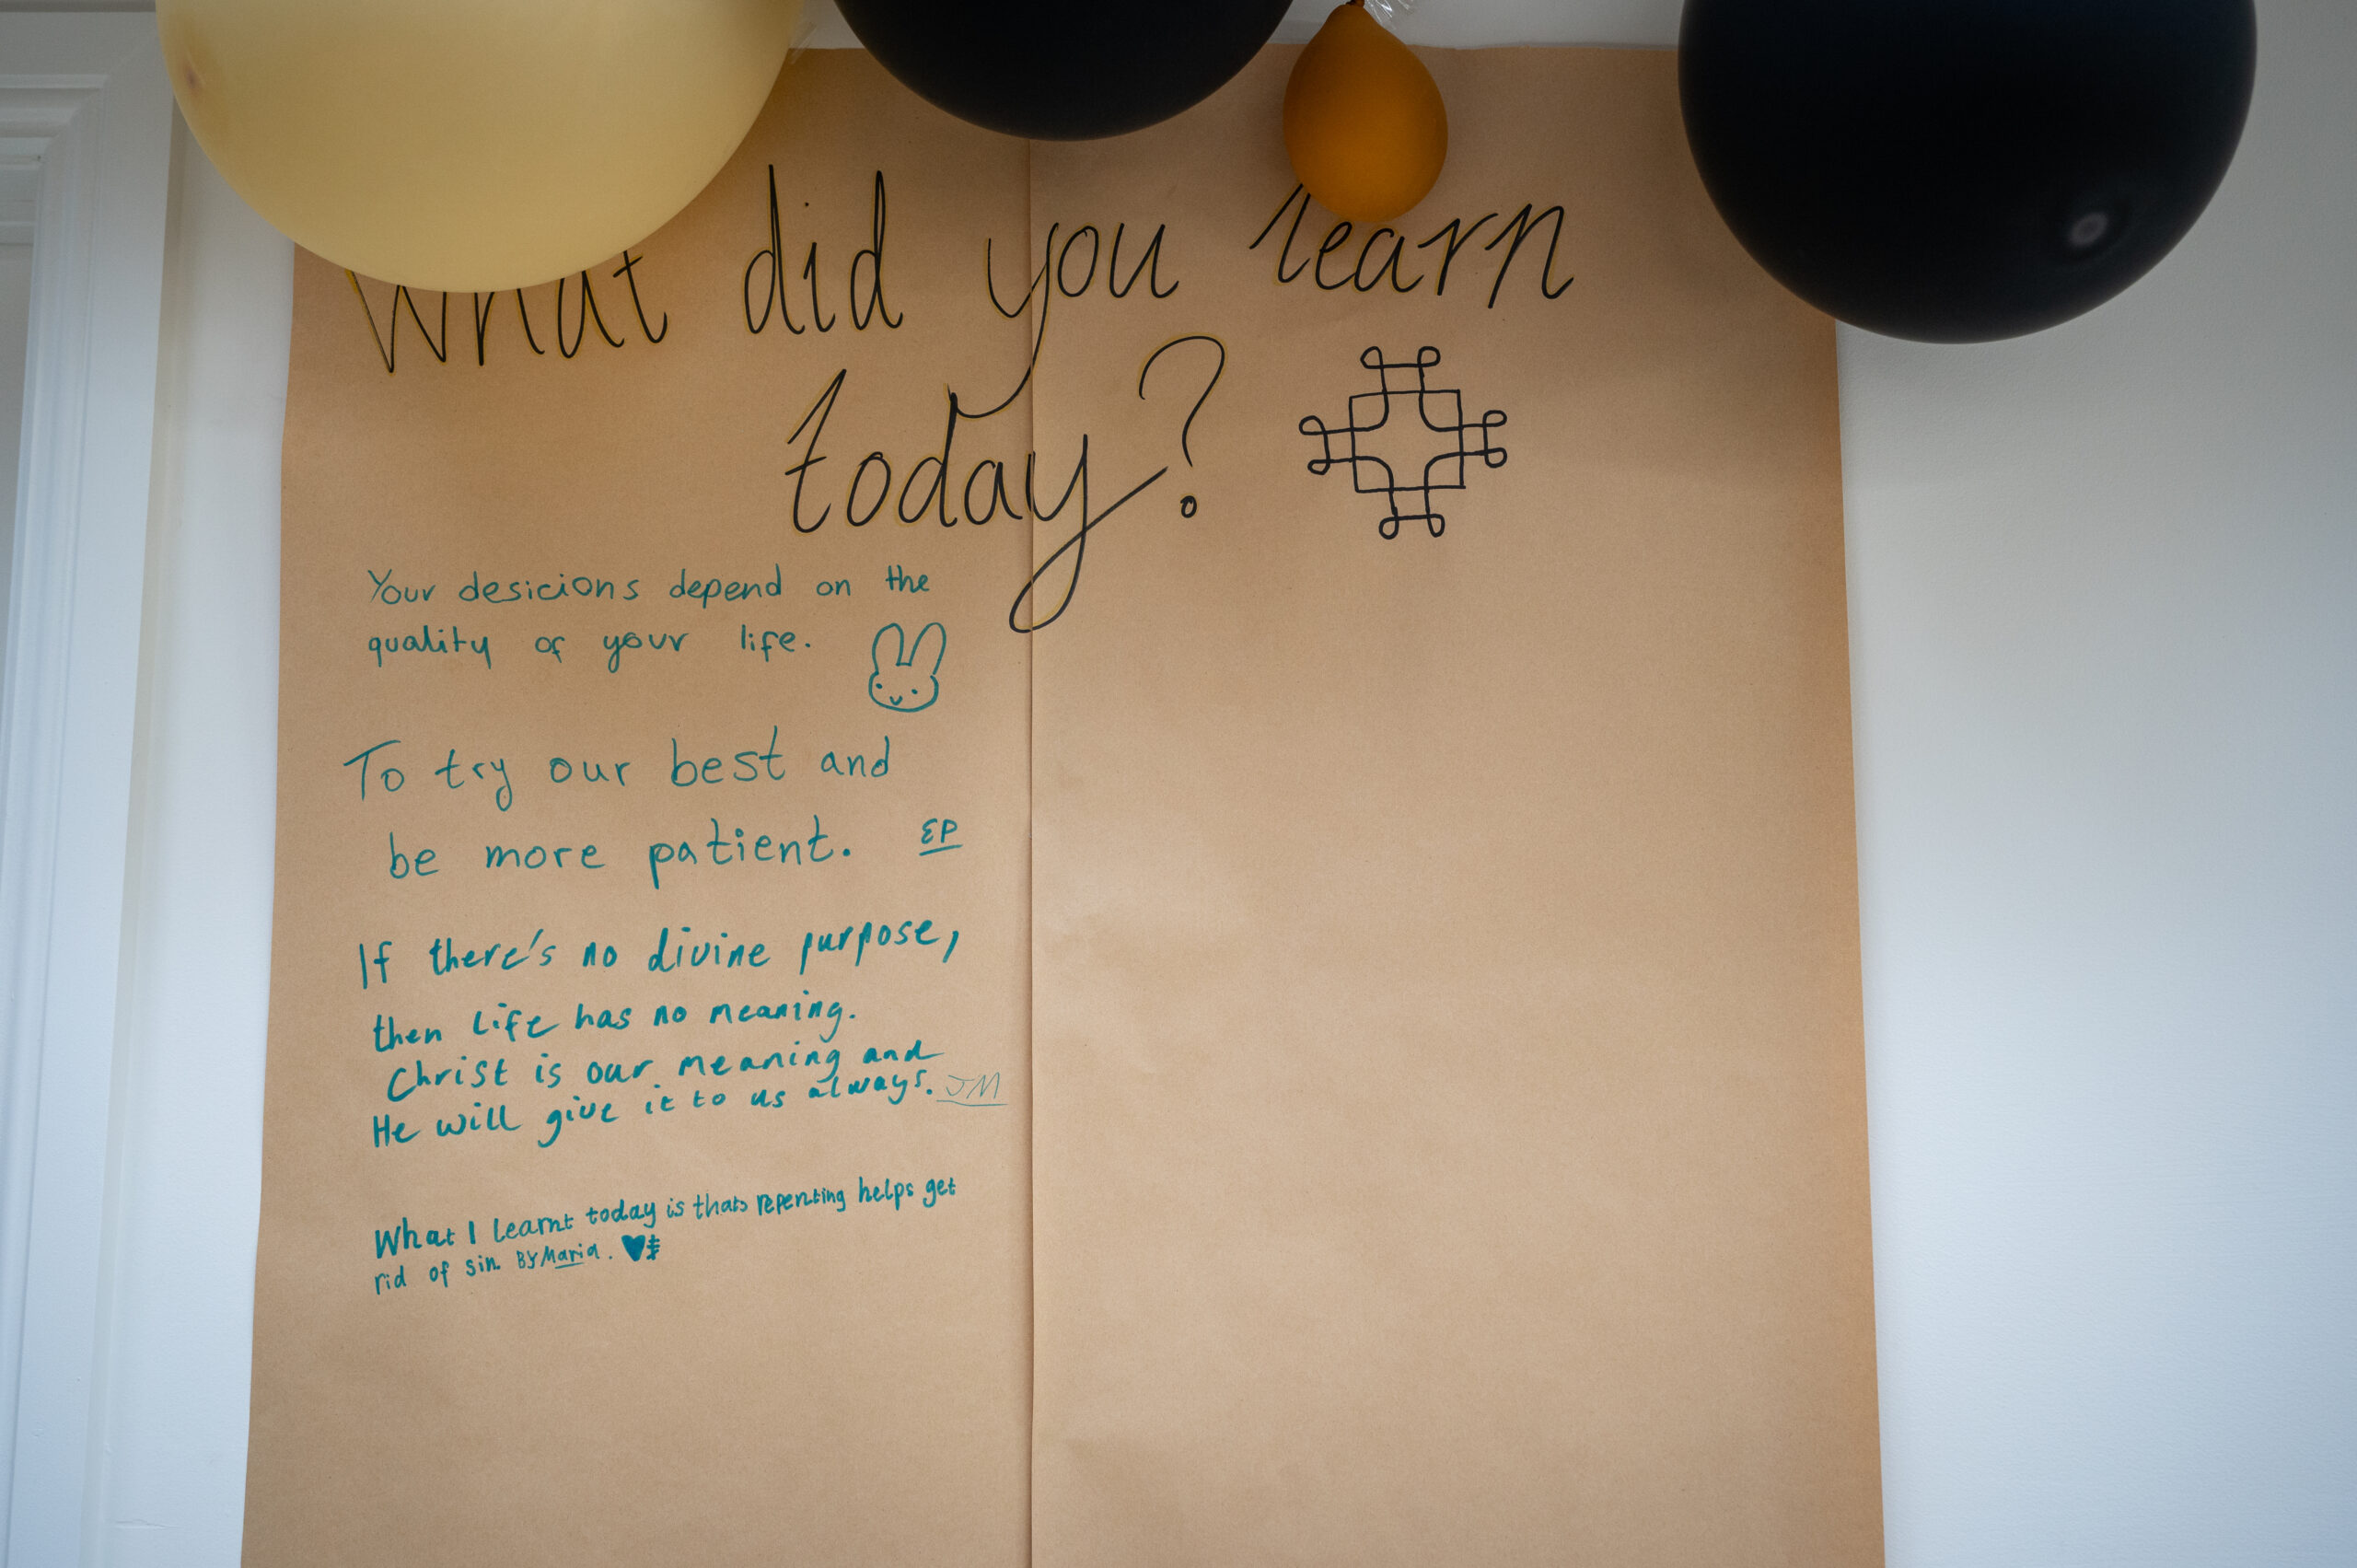 What did you learn
today?
Your desicions depend on the
quality of your life.
To try our best and
be more patient. EP
If there's no divine purpose,
then life has no meaning.
Christ is our meaning and
He will give it to us always. JM
What I learnt today is thats repenting helps get
rid of sin. By Maria.